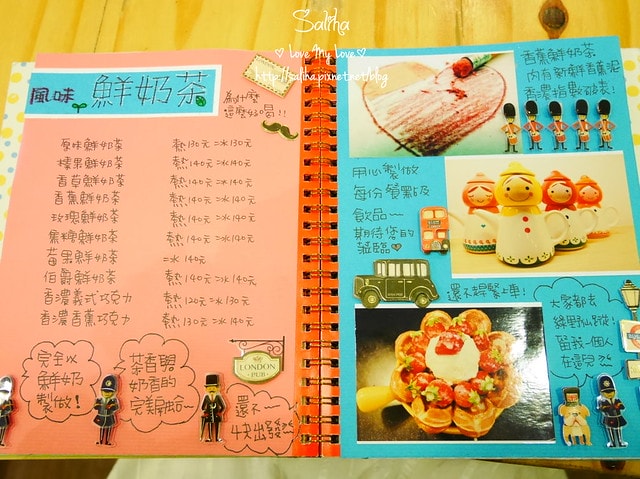 Saliha
Love My Love
http://saliha.pixnet.net/blog
風味 鮮奶茶
為什麼
這麼好喝!!
原味鮮奶茶 熱130元 冰130元
榛果鮮奶茶 熱140元 冰140元
香草鮮奶茶 熱140元 冰140元
香蕉鮮奶茶 熱140元 冰140元
玫瑰鮮奶茶 熱140元 冰140元
焦糖鮮奶茶 熱140元 冰140元
莓果鮮奶茶 冰140元
伯爵鮮奶茶 熱140元 冰140元
香濃義式巧克力 熱120元 冰130元
香濃香蕉巧克力 熱130元 冰140元
完全以
鮮奶
製做!
茶香與
奶香的
完美融合~
LONDON
PUB
還不~
快出發
香蕉鮮奶茶
內有新鮮香蕉泥
香濃指數破表!
用心製做
每份餐點及
飲品~
期待您的
蒞臨
還不趕緊上車!
大家都去
綠野仙蹤!
留我一個人
在這兒